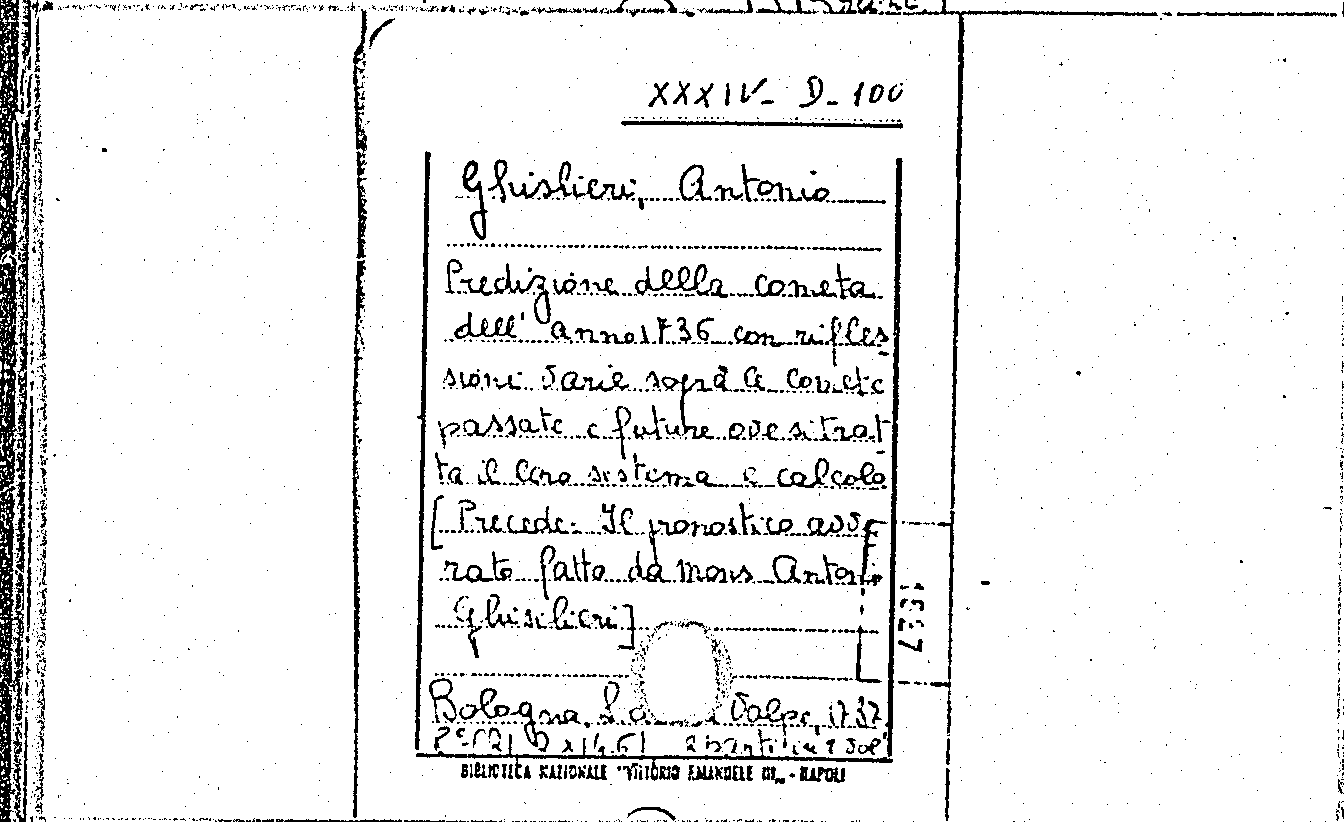 XXXIV- D- 100
Ghislieri, Antonio
Predizione della cometa
dell' anno 1736 con rifles
sioni varie sopra le comete
passate e future ove si trat
ta il loro sistema e calcolo
[Precede: Il pronostico avve
rato fatto da mons Antonio
Ghisilieri]
Bologna, Volpe, 1737,
2 parti in 1 vol
BIBLIOTECA NAZIONALE "VITTORIO EMANUELE III" - NAPOLI
1937